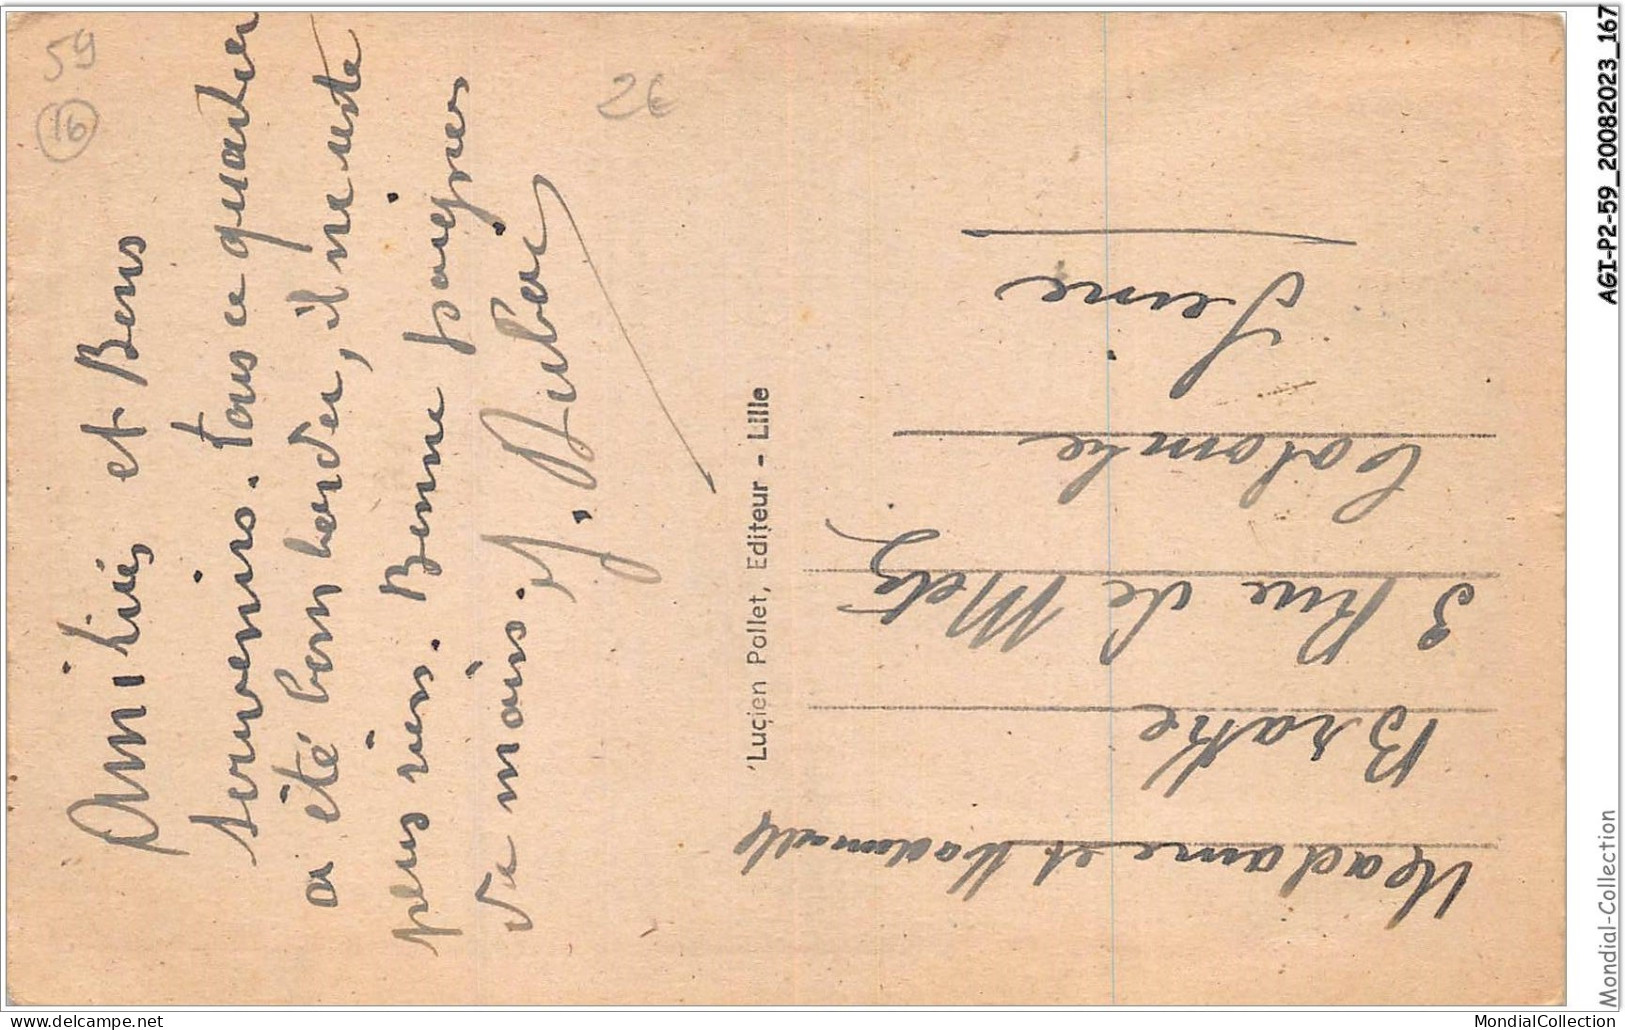 59
16
2€
Amitiés et Bons
souvenirs. tous ce quartier
a été bombarder, il ne reste
plus rien. Bonne poignées
de mains.
J. Dubac
Lucien Pollet, Editeur - Lille
Madame et Mademoiselle
Brathe
3 Rue de Metz
Colombe
Seine
AGI-P2-59_20082023_167
Mondial-Collection
delcampe.net
MondialCollection